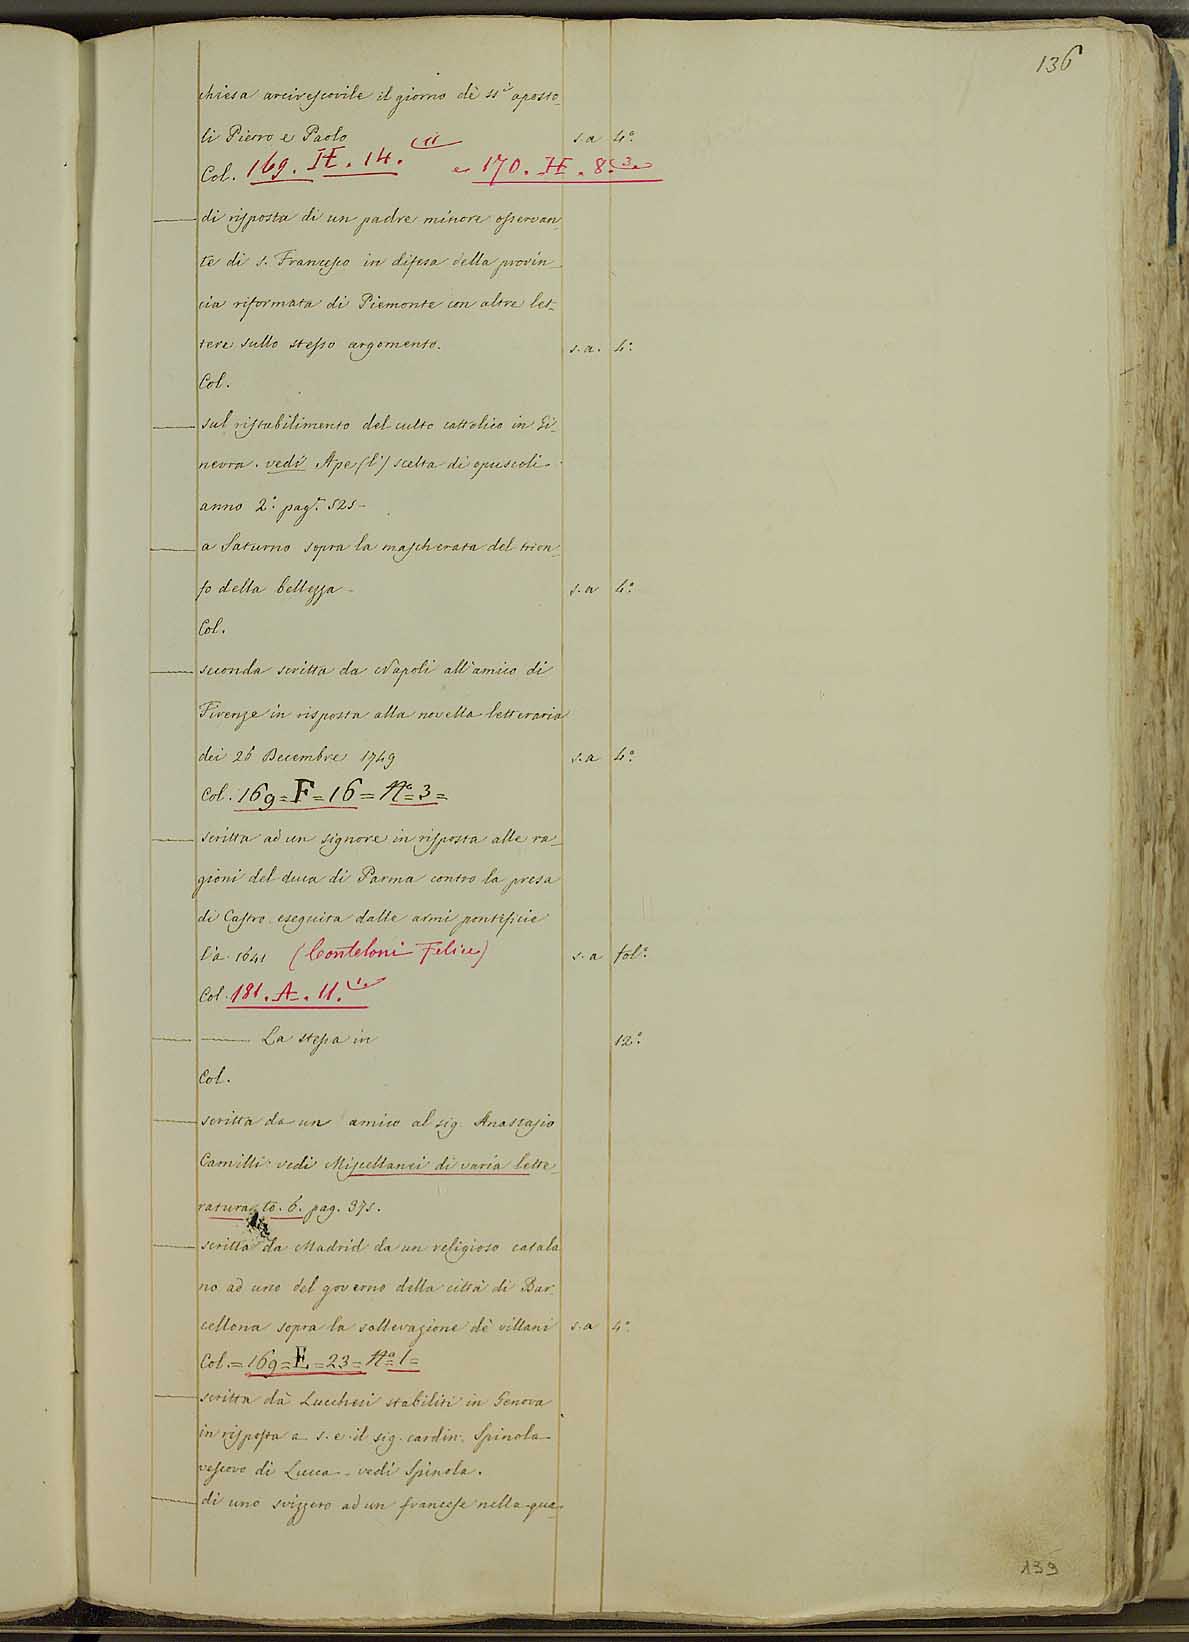 136
chiesa arcivescovile il giorno dè SS.i aposto_
li Pietro e Paolo s.a 4.°
Col. 169. H. 14. e 170. H. 8. 3.
—— di risposta di un padre minore osservan_
te di s. Francesco in difesa della provin_
cia riformata di Piemonte con altre let_
tere sullo stesso argomento. s.a. 4.°
Col.
—— sul ristabilimento del culto cattolico in Gi_
nevra. vedi Ape (l') scelta di opuscoli
anno 2.° pag. 525-
—— a Saturno sopra la mascherata del trion_
fo della bellezza - s.a 4.°
Col.
—— seconda scritta da Napoli all'amico di
Firenze in risposta alla novella letteraria
dei 26 Decembre 1749 s.a 4.°
Col. 169=F=16=N.°=3=
—— scritta ad un signore in risposta alle ra_
gioni del duca di Parma contro la presa
di Castro eseguita dalle armi pontificie
l'a. 1641 (Conteloni Felice) s.a fol.°
Col. 181. A. 11. 1.
—— —— La stessa in 12.°
Col.
—— scritta da un amico al sig. Anastasio
Camilli: vedi Miscellanei di varia lette_
ratura to. 6. pag. 375.
—— scritta da Madrid da un religioso catala
no ad uno del governo della città di Bar_
cellona sopra la sollevazione dè villani s.a 4.°
Col.=169=E=23=N.° 1=
—— scritta dà Lucchesi stabiliti in Genova
in risposta a s. e. il sig. cardin. Spinola
vescovo di Lucca - vedi Spinola.
—— di uno svizzero ad un francese nella qua_
139